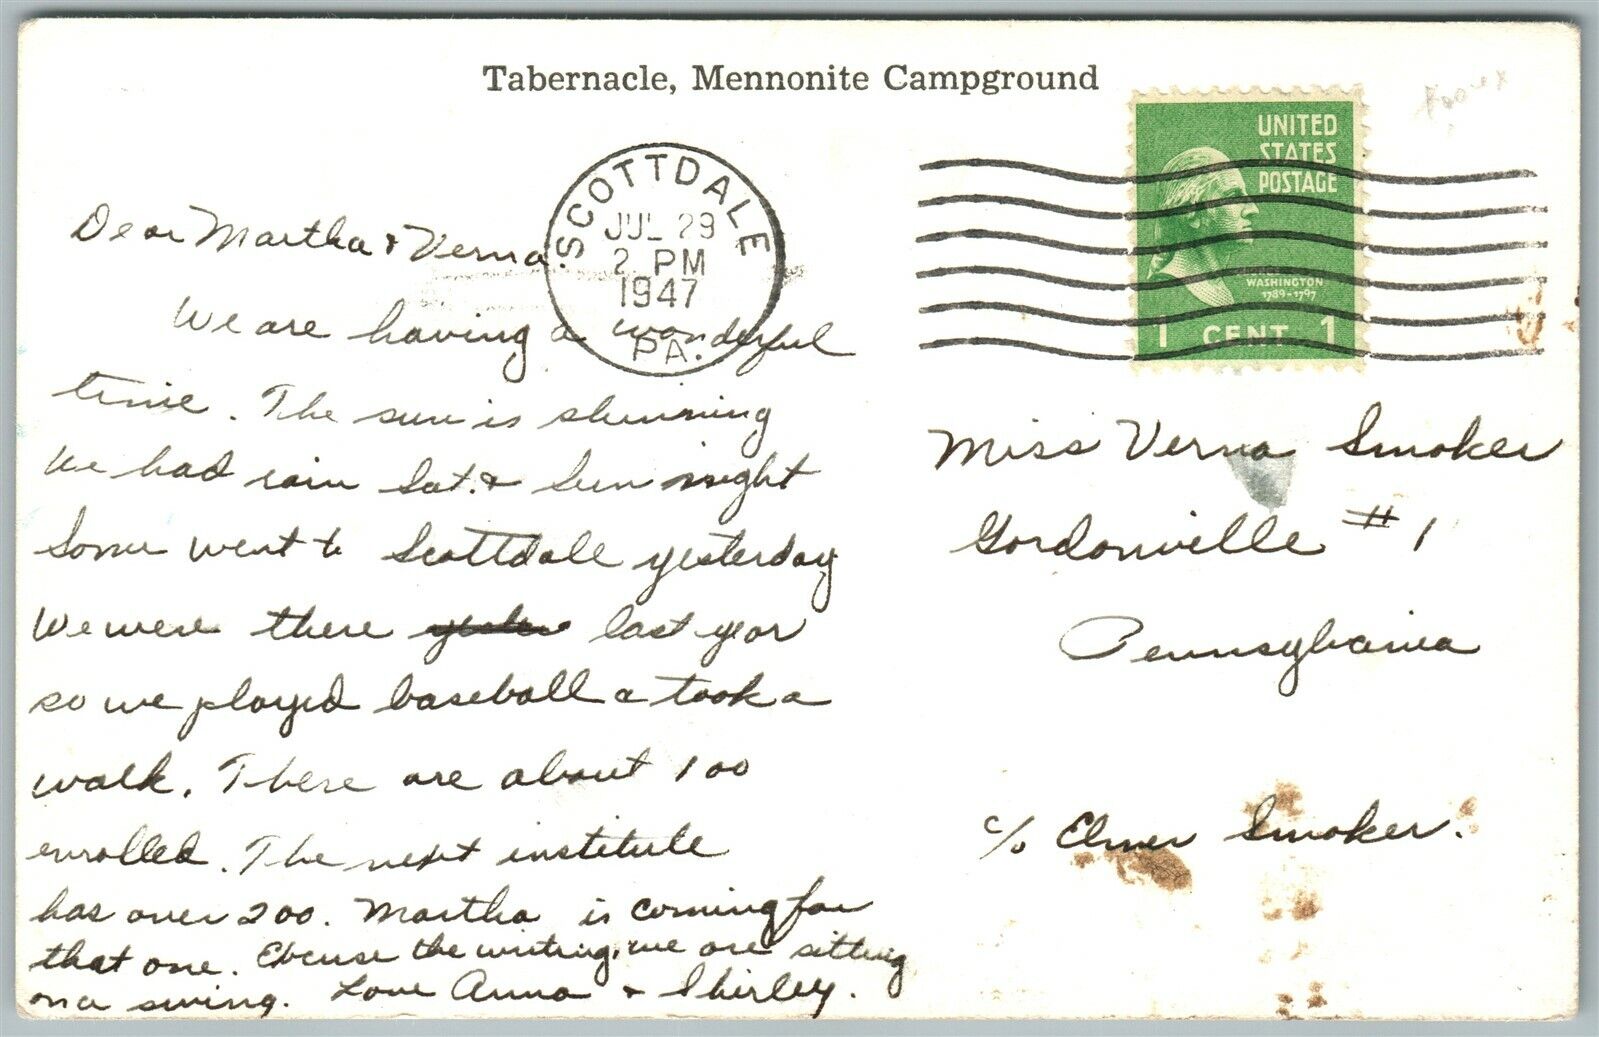 Tabernacle, Mennonite Campground
UNITED
STATES
POSTAGE
WASHINGTON
1789-1797
1 CENT 1
SCOTTDALE
JUL 29
2 PM
1947
PA.
Dear Martha & Verna.
We are having a wonderful
time. The sun is shinning
We had rain Sat. & Sun night
Some went to Scottdale yesterday
We were there last year
so we played baseball & took a
walk. There are about 100
enrolled. The next institute
has over 200. Martha is coming for
that one. Excuse the writing, we are sitting
on a swing. Love Anna & Shirley.
Miss Verna Smoker
Gordonville #1
Pennsylvania
c/o Elmer Smoker.